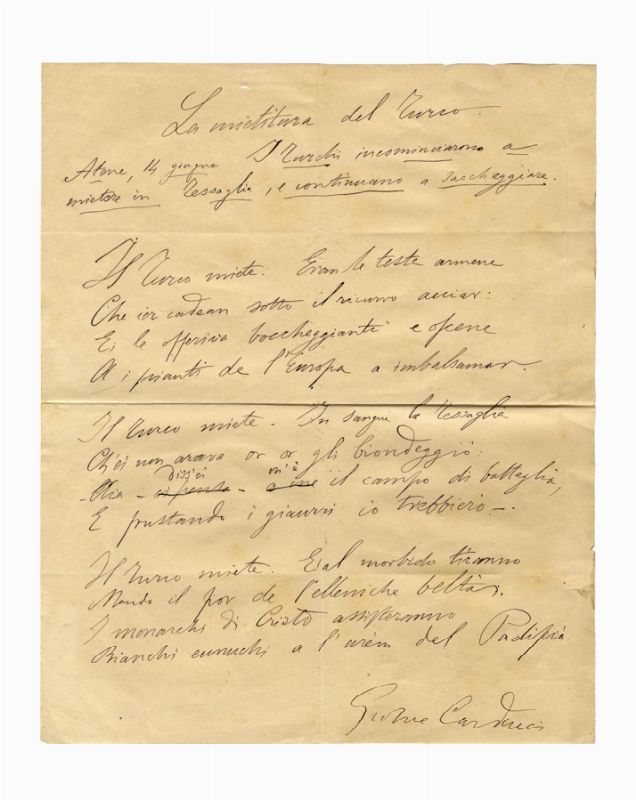 La mietitura del Turco.
Atene, 14 giugno I Turchi incominciarono a
mietere in Tessaglia, e continuano a saccheggiare.
Il Turco miete. Eran le teste armene
Che ier cadean sotto il ricurvo acciar:
Ei le offeriva boccheggianti e oscene
A i pianti de l'Europa a imbalsamar.
Il Turco miete. In sangue la Tessaglia
Ch'ei non arava or or gli biondeggiò:
diss'ei m'è
- Aia - il campo di battaglia,
E frustando i giaurri io trebbierò -.
Il Turco miete. E al morbido tiranno
Manda il fior de l'elleniche beltà.
I monarchi di Cristo assisteranno
Bianchi eunuchi a l'arèm del Padiscià
Giosue Carducci